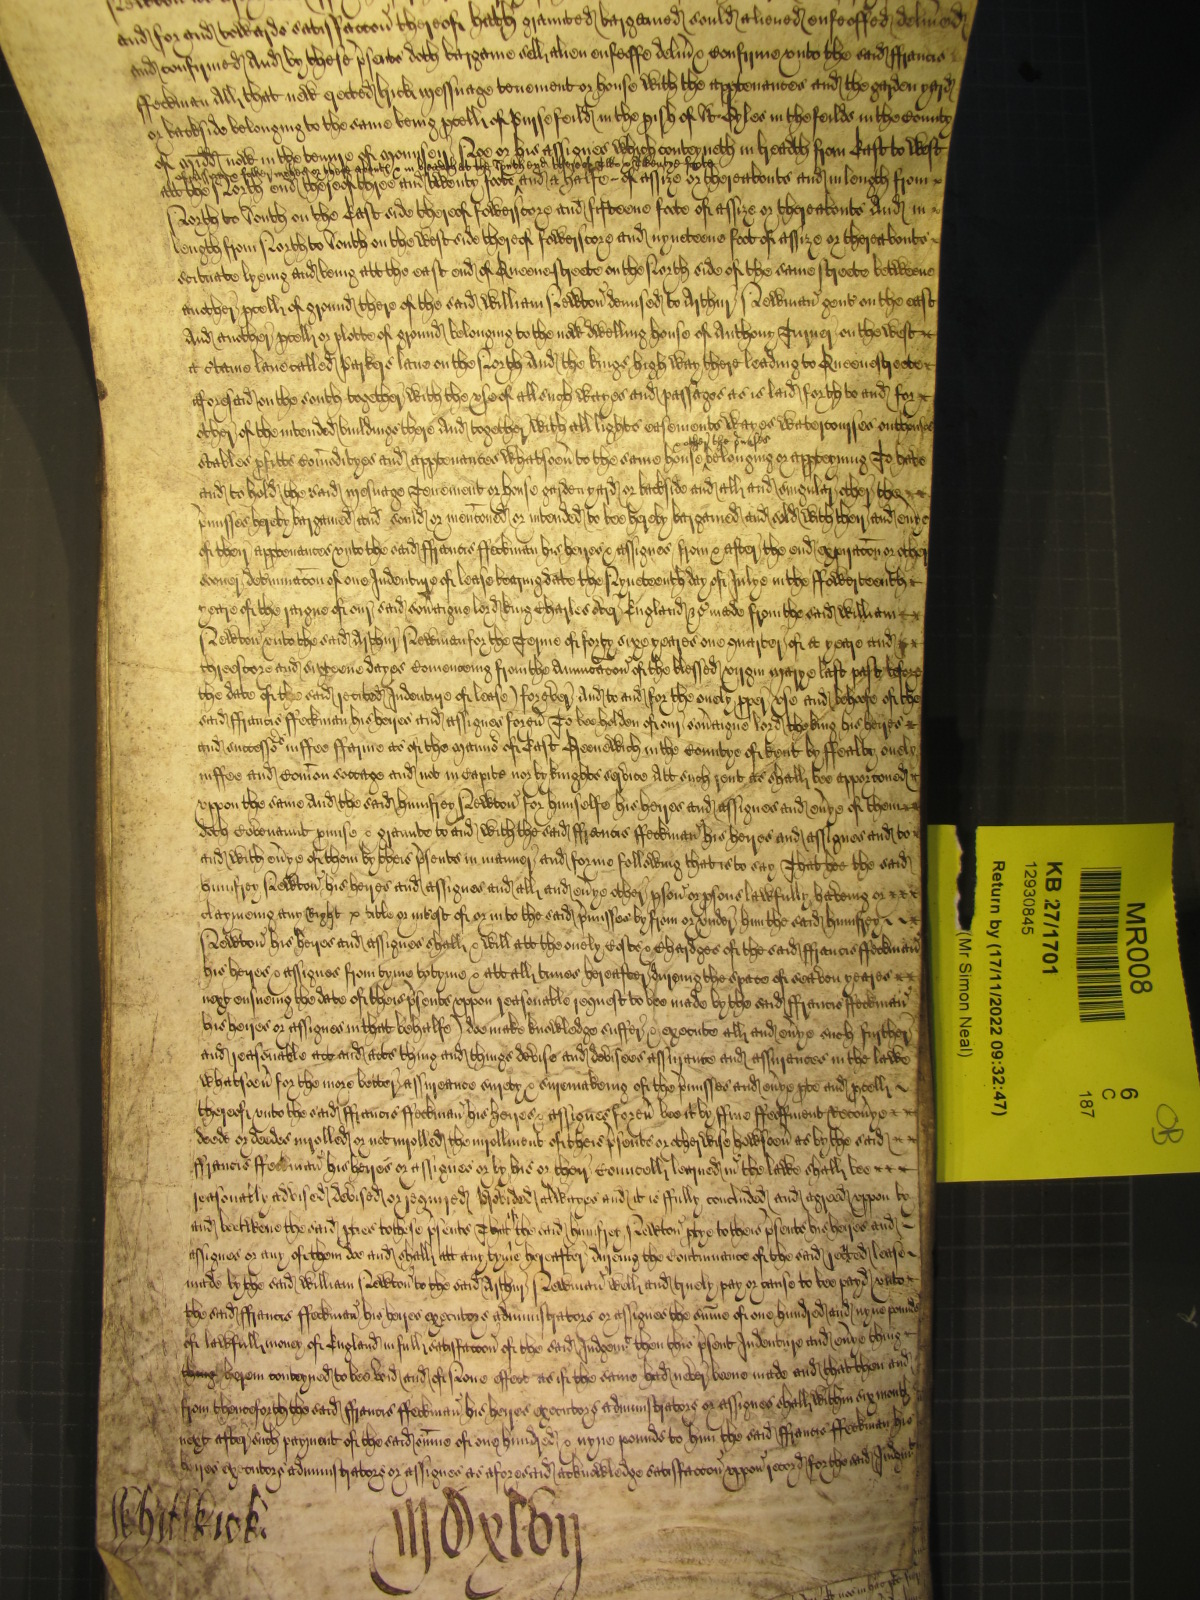 and for and towards satisfaccon thereof Hath graunted bargained sould aliened enfeoffed delivred
and confirmed And by these psents doth bargaine sell alien enfeoffe deliver & confirme unto the said ffrancis
ffeckman All that new erected brick messuage tenement or house with the apptenances and the garden yard
or backside belonging to the same being pcell of Pursefeild in the pish of St Gyles in the feilds in the County
of Midd now in the tenure of Lee or his assignes which conteyneth in breadth from East to West
att the North end thereof three and twenty foote and a halfe of assize or thereabouts and in length from
North to South on the East side thereof fowerscore and fifteene foote of assize or thereabouts And in
length from North to South on the west side thereof fowerscore and nyneteene foot of assize or thereabouts
scituate lyeing and being att the east end of Queenestreete on the North side of the same streete betweene
another pcell of ground there of the said William Newton demised to Arthur Newman gent on the east
And another pcell or plotte of ground belonging to the now dwelling house of Anthony Turner on the west
a Cawse lane called Parkers lane on the North And the kings high way there leading to Queenestreete
aforesaid on the south together with the use of all such wayes and passages as is laid forth to and for
other of the intended buildings there And together with all lights easements wayes watercourses
stables pfitts Comodityes and apptenances whatsoever to the same house belonging or appteyning To have
and to hold the said mesuage Tenement or house garden yard or backside and all and singuler other the
pmisses hereby bargained and sould or mentoned or intended to bee hereby bargained and sold with their and every
of their apptenances unto the said ffrancis ffeckman his heires & assignes from & after the end expiracon or other
sooner determinacon of one Indenture of lease beareing date the Nyneteenth day of Julye in the ffowerteenth
yeare of the raigne of our said soveraigne lord king Charles over England &c made from the said William
Newton unto the said Arthur Newman for the Terme of forty sixe yeares one quarter of a yeare and
threescore and sixteene dayes Comenceing from the Annuntiacon of the blessed virgin marye last past before
the date of the said recited Indenture of lease) for ever And to and for the onely pper use and behoofe of the
said ffrancis ffeckman his heires and assignes forever To bee holden of our soveraigne lord the king his heires
and successors in ffee ffarme as of the mannor of East Greenewich in the Countye of Kent by ffealty onely
in ffee and Comon soccage and not in Capite nor by knights service Att such rent as shall bee apporconed
uppon the same And the said humfrey Newton for himselfe his heires and assignes and every of them
doth Covenannt pmise & graunte to and with the said ffrancis ffeckman his heires and assignes and to
and with every of them by theis psents in manner and forme following that is to say That hee the said
humfrey Newton his heires and assignes and all and every other pson or psons lawfully haveing or
claymeing any Right title or interest of or in to the said pmisses by from or under him the said humfrey
Newton his heires and assignes shall & will att the onely Costs & Chardges of the said ffrancis ffeckman
his heires & assignes from tyme to tyme & att all times hereafter dureing the space of seaven yeares
next ensueing the date of theis psents uppon reasonable request to bee made by the said ffrancis ffeckman
his heires or assignes in that behalfe) doe make knowledge suffer & execute all and every such further
and reasonable act and acts thing and things devise and devises assurance and assurances in the lawe
whatsoever for the more better assureance surety & suremakeing of the pmisses and every pte and pcell
thereof unto the said ffrancis ffeckman his heires & assignes forever bee it by ffine ffeoffment Recovrye
deede or deedes inrolled or not inrolled the inrollment of theis psents or otherwise howsoever as by the said
ffrancis ffeckman his heires or assignes or by his or their Councell learned in the lawe shall bee
reasonably advised devised or required Provided alwayes and it is ffully concluded and agreed uppon by
and betweene the said pties to these psents That if the said humfrey Newton ptye to theis psents his heires and
assignes or any of them doe and shall att any tyme hereafter dureing the Continuance of the said recited lease
made by the said William Newton to the said Arthur Newman well and truely pay or cause to bee payd unto
the said ffrancis ffeckman his heires executors administrators or assignes the sume of one hundred and nyne pounds
of lawfull money of England in full satisfaccon of the said Judgemt then this psent Indenture and every thing
herein conteyned to bee void and of None effect as if the same had never beene made and that then and
from thenceforth the said ffrancis ffeckman his heires executors administrators or assignes shall within six months
next after such payment of the said sume of one hundred & nyne pounds to him the said ffrancis ffeckman his
heires executors administrators or assignes as aforesaid acknowledge satisfaccon uppon record for the said Judgmt
Whitwick.
MR008
6
C
187
KB 27/1701
12930845
Return by (17/11/2022 09:32:47)
(Mr Simon Neal)